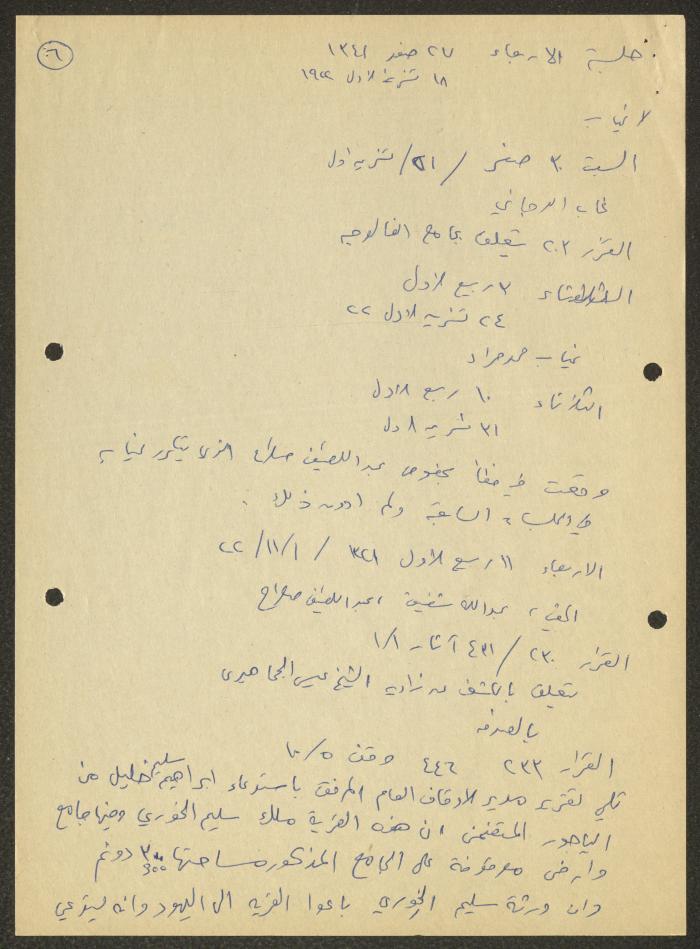 ٦
جلسة الاربعاء ٢٧ صفر ١٣٤١
١٨ تشرين الاول ١٩٢٢
لا غياب
السبت ٣٠ صفر / ٢١/ تشرين اول
غاب الدجاني
القرار ٢٠٣ يتعلق بجامع الفالوجه
الثلاثاء ٣ ربيع الاول
٢٤ تشرين الاول ٢٢
غياب حمد مراد
الثلاثاء ١٠ ربيع الاول
٣١ تشرين الاول
وقعت في خطأ بخصوص عبد اللطيف صلاح الذي يتكرر غيابه
في الجلسة السابقة ولم ادون ذلك .
الاربعاء ١١ ربيع الاول ٣٤١ / ٢٢/١١/١
الغياب عبدالله شفيق ، عبد اللطيف صلاح
القرار ٢٣٠ / ٤٣١ آثار ١/١
يتعلق بالكشف عن زاوية الشيخ عيسى
بالصرفه
القرار ٢٣٣ ٤٤٦ وقف ١٠/٥
تلي تقرير مدير الاوقاف العام المرفق باستدعاء ابراهيم سليم خليل من
الياجور المتضمن ان هذه القرية ملك سليم الخوري وفيها جامع
وارض موقوفة على الجامع المذكور مساحتها ٣٠٠ دونم
وان ورثة سليم الخوري باعوا القريه الى اليهود وانه يستدعي